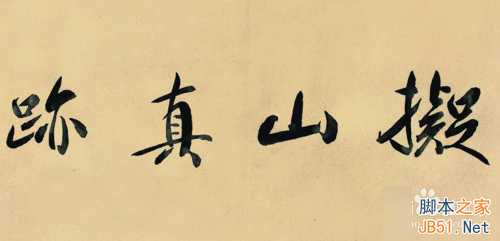 擬山真跡
脚本之家
JB51.Net